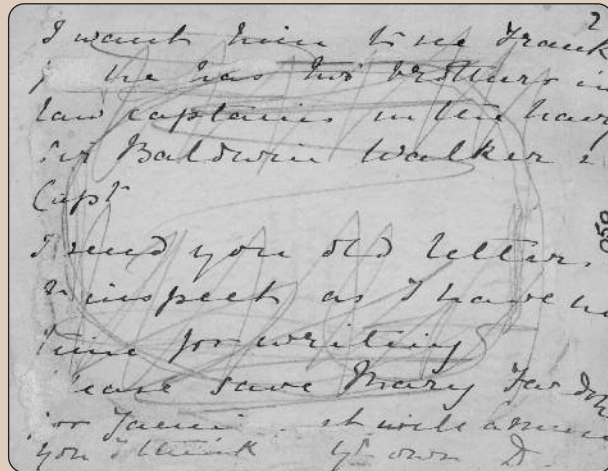 2
I want him to see Frank
he has two brothers in
law captains in the navy
Sir Baldwin Walker &
Capt
I send you old letters
to inspect as I have no
time for writing
Please save Mary
for it will amuse
you I think yr own D